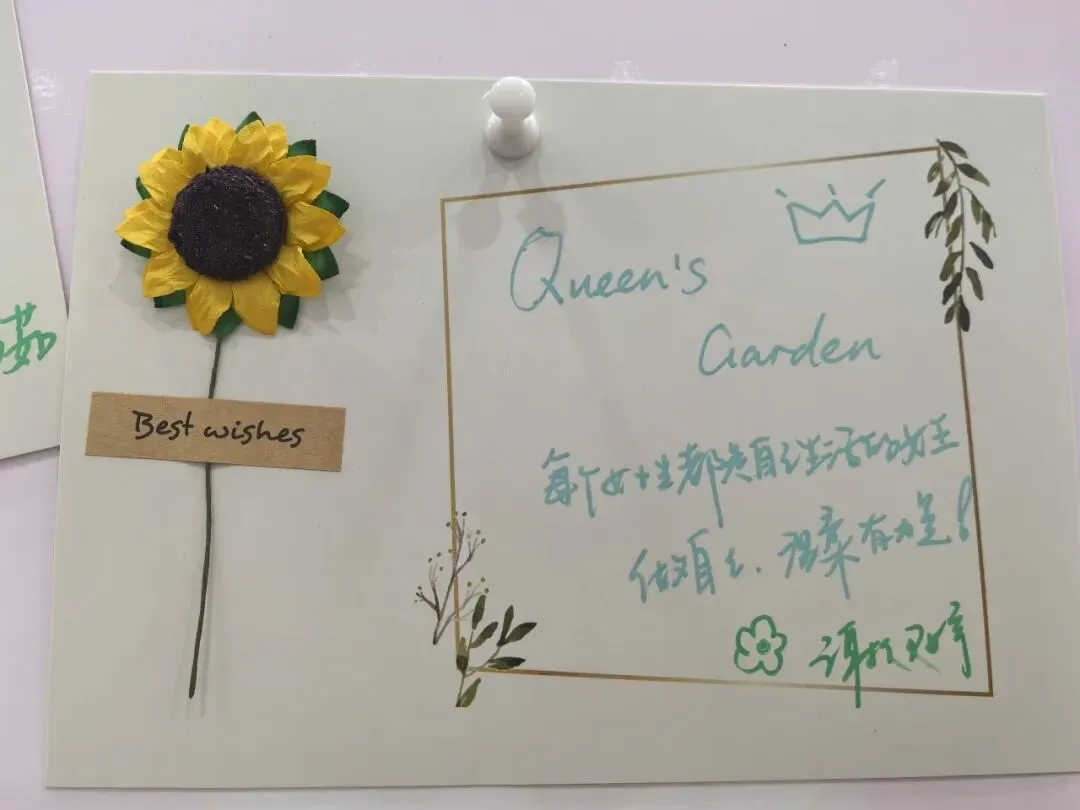 茹
Best wishes
Queen's
Garden
每个女生都是自己生活的女王
做自己、温柔有力量!
谢